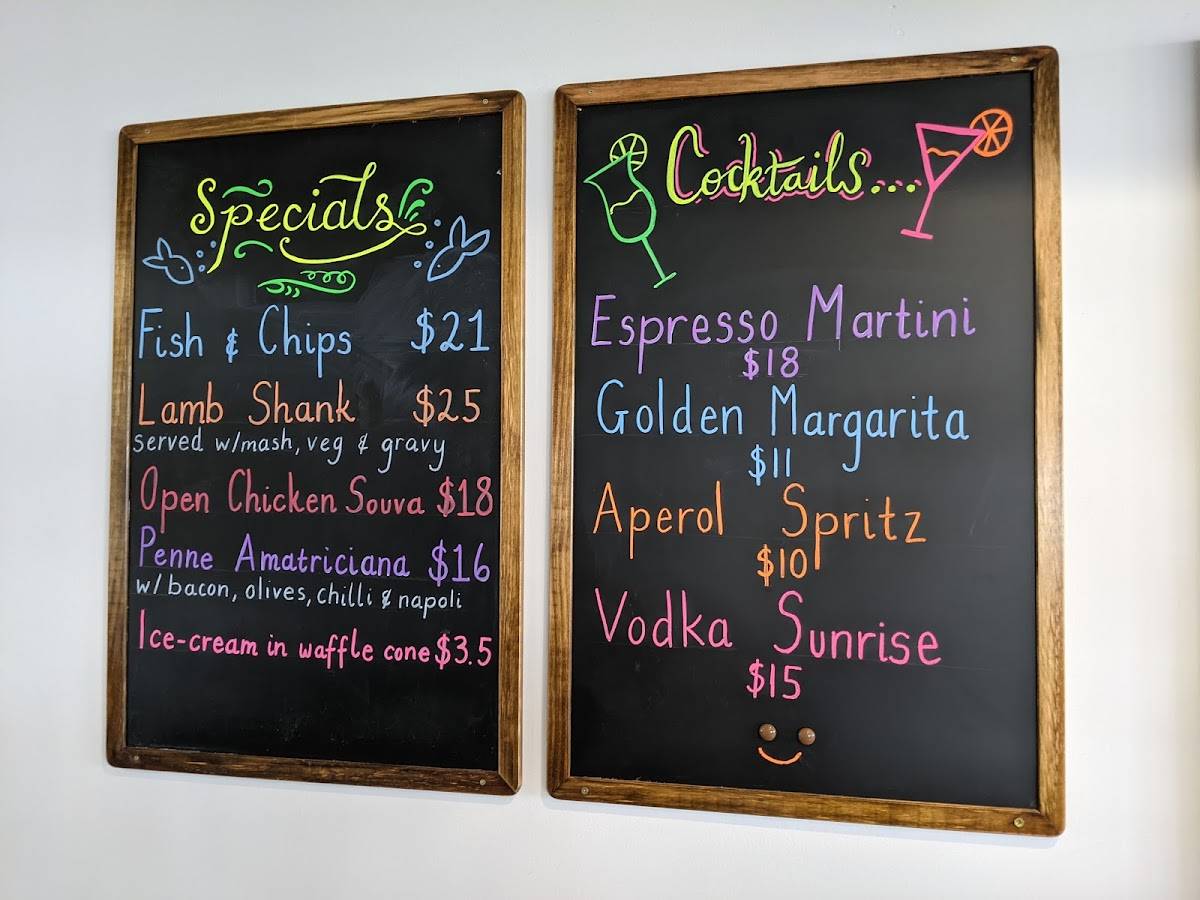 Specials
Fish & Chips $21
Lamb Shank $25
served w/mash, veg & gravy
Open Chicken Souva $18
Penne Amatriciana $16
w/ bacon, olives, chilli & napoli
Ice-cream in waffle cone $3.5
Cocktails...
Espresso Martini
$18
Golden Margarita
$11
Aperol Spritz
$10
Vodka Sunrise
$15